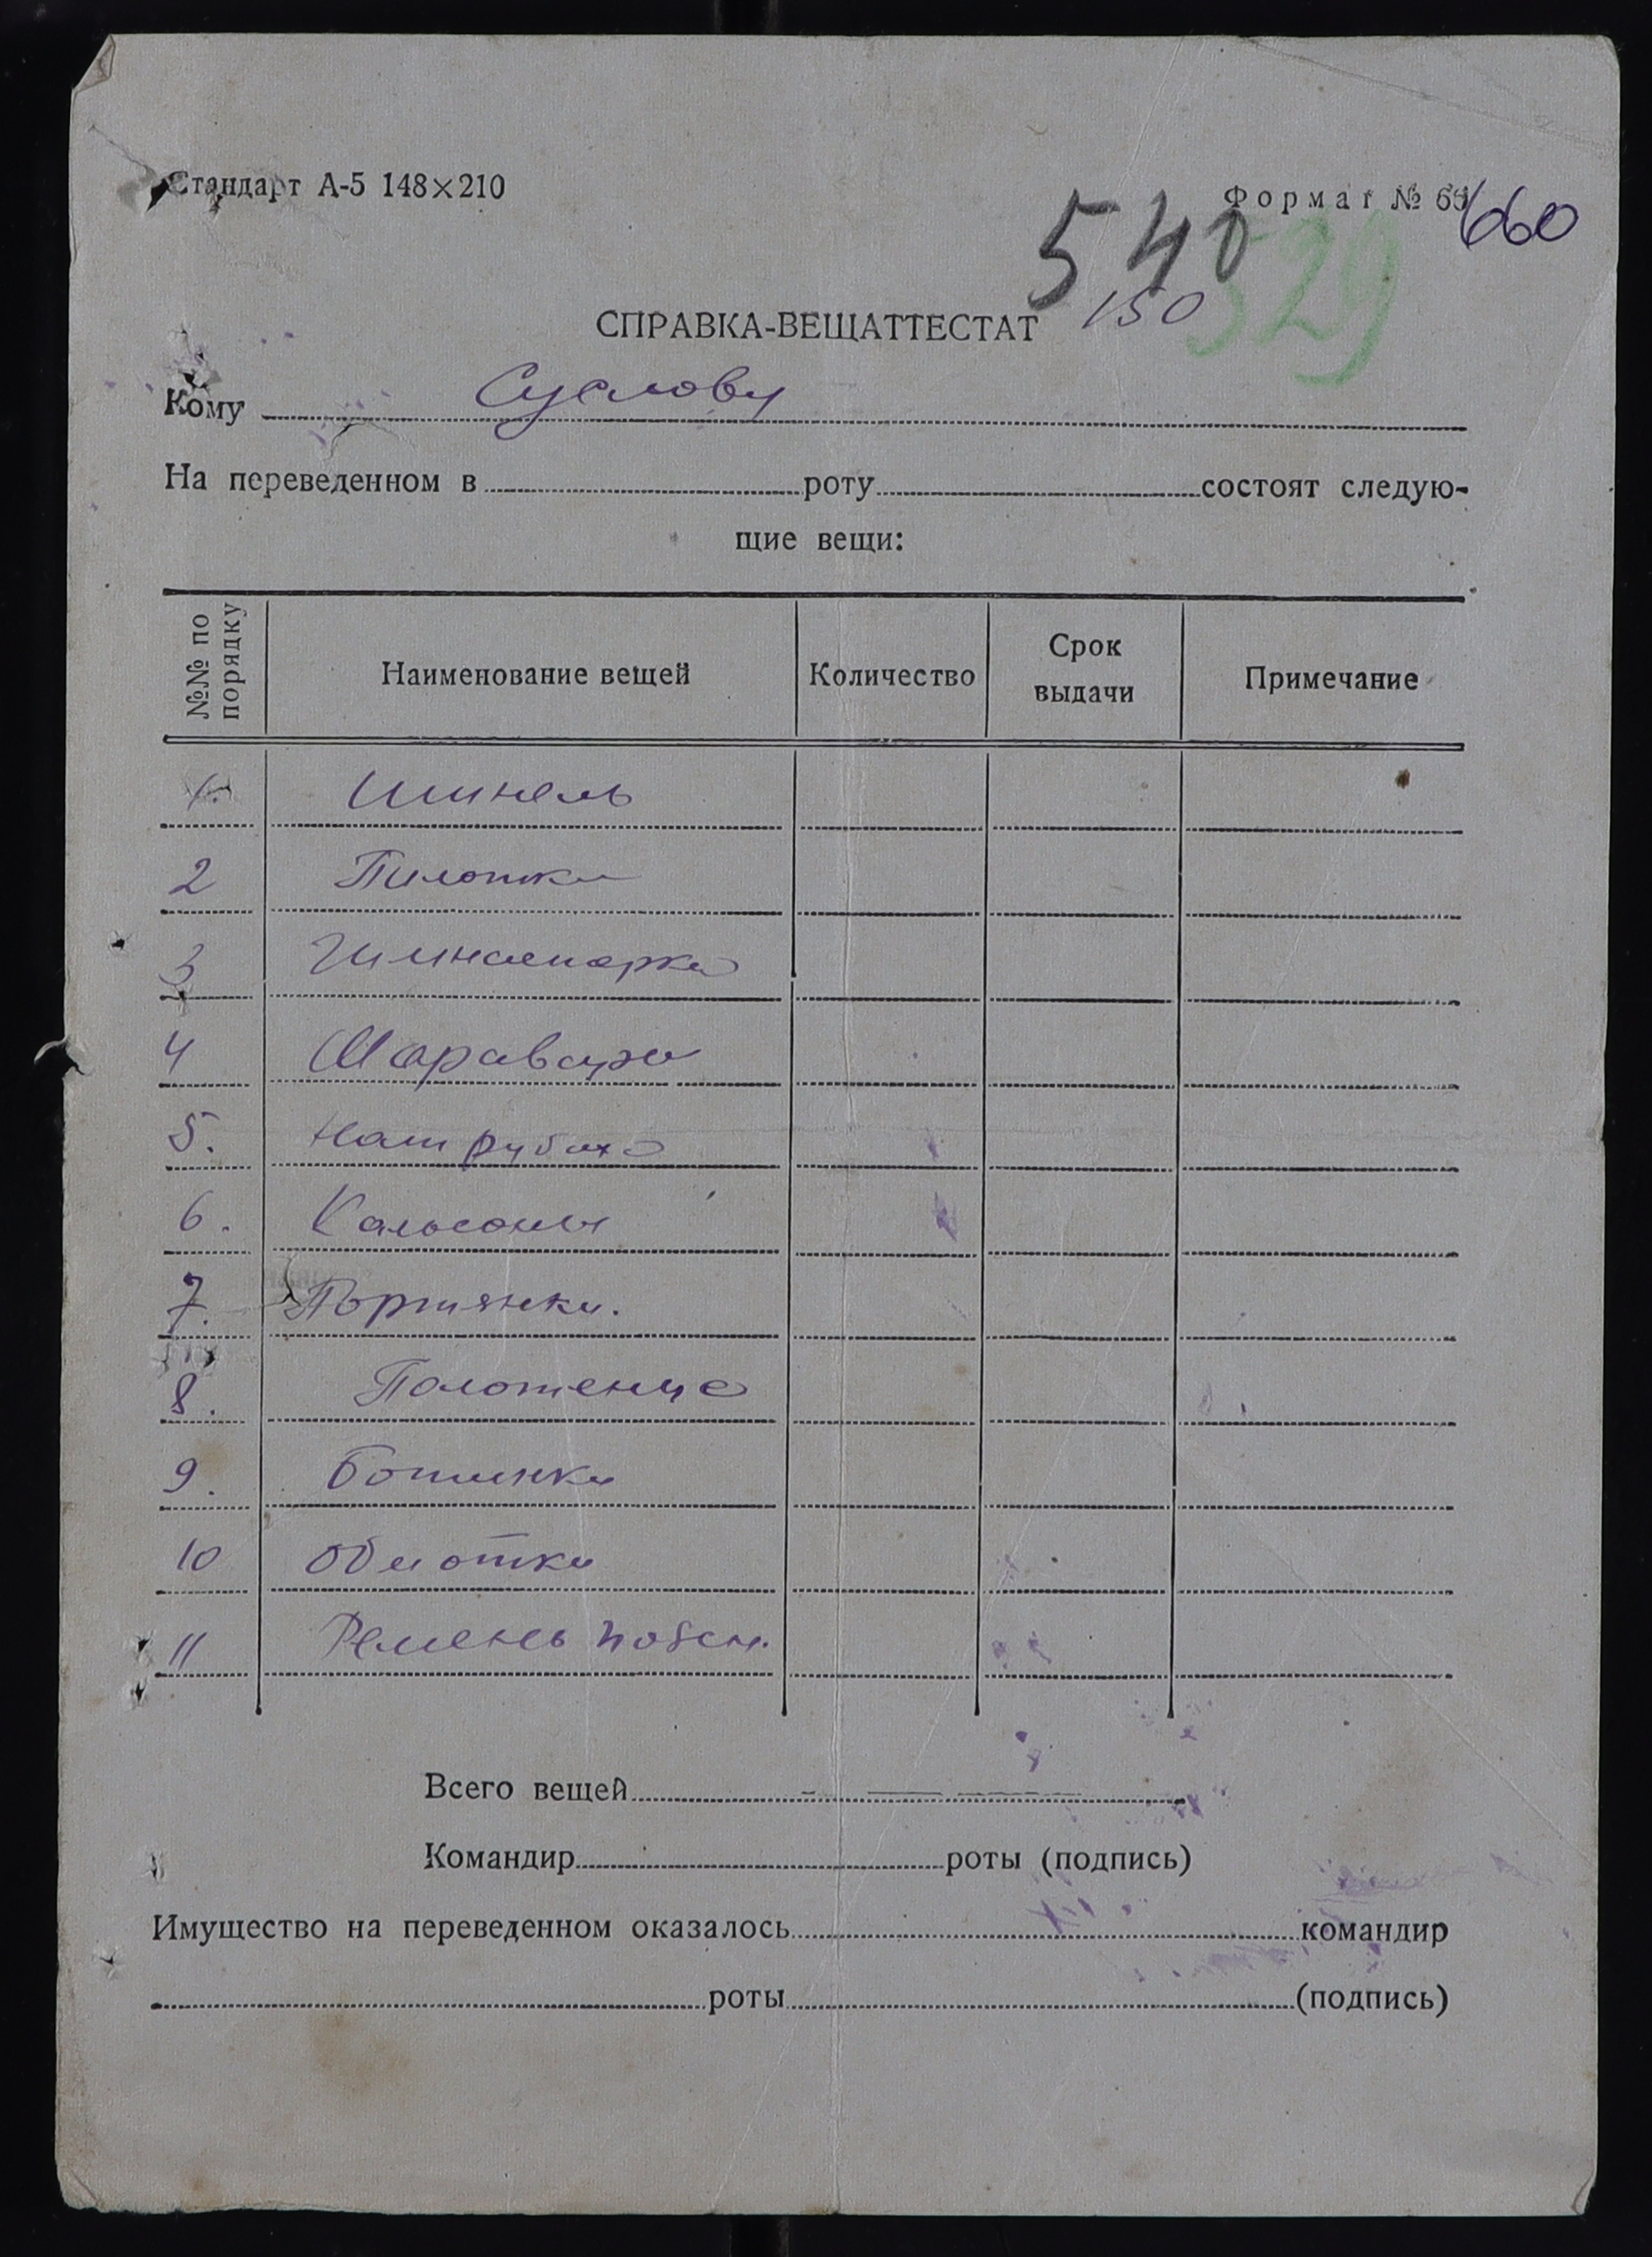 Стандарт А-5 148×210
Формат № 65
660
540
529
150
СПРАВКА-ВЕЩАТТЕСТАТ
Кому Суслову
На переведенном в роту состоят следую-
щие вещи:
№№ по порядку Наименование вещей Количество Срок выдачи Примечание
1. Шинель
2 Пилотка
3 Гимнастерка
4 Шаравары
5. Нат рубаха
6. Кальсоны
7. Портянки.
8. Полотенце
9. Ботинки
10 Обмотки
11 Ремень поясн.
Всего вещей
Командир роты (подпись)
Имущество на переведенном оказалось командир
роты (подпись)